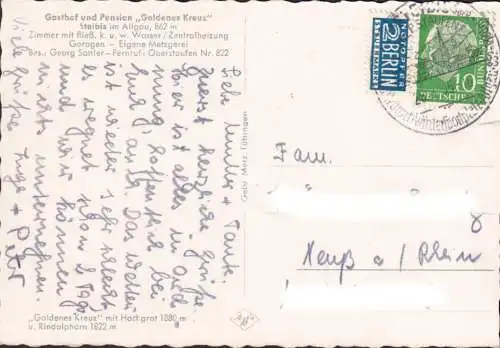 Gasthof und Pension „Goldenes Kreuz"
Steibis im Allgäu, 862 m
Zimmer mit fließ. k. u. w. Wasser / Zentralheizung
Garagen – Eigene Metzgerei
Bes.: Georg Sattler – Fernruf: Oberstaufen Nr. 822
Liebe + Tante.
Zuerst herzliche Grüße.
Hier ist alles in Ord-
nung, hoffentlich bei
Euch auch. Das Wetter
ist wieder sehr schlecht
es regnet schon 2 Tage
und wir können
nichts unternehmen.
Viele Grüße Inge + Peter
Gebr. Metz, Tübingen
NOTOPFER
2 BERLIN
STEUERMARKE
10
DEUTSCHE
Fam.
Neuß a / Rhein
„Goldenes Kreuz" mit Hochgrat 1880 m
u. Rindalphorn 1822 m